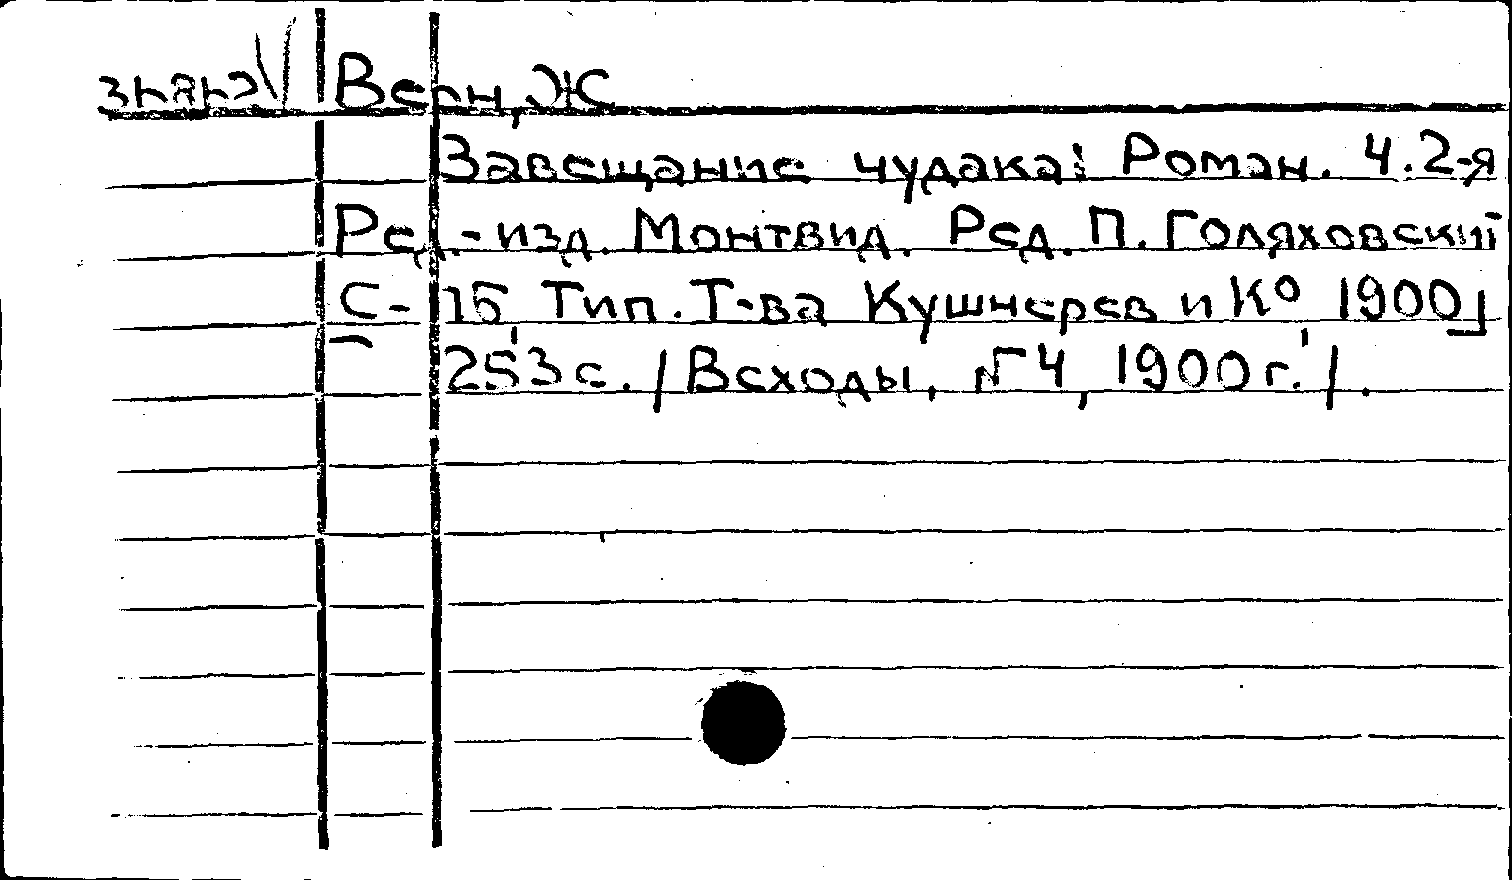 Верн, Ж
Завещание чудака: Роман. Ч.2-я
Ред.-изд. Монтвид. Ред. П. Голяховский
С-Пб, Тип. Т-ва Кушнерев и Ко, 1900]
253 с. /Всходы, №4, 1900г./.